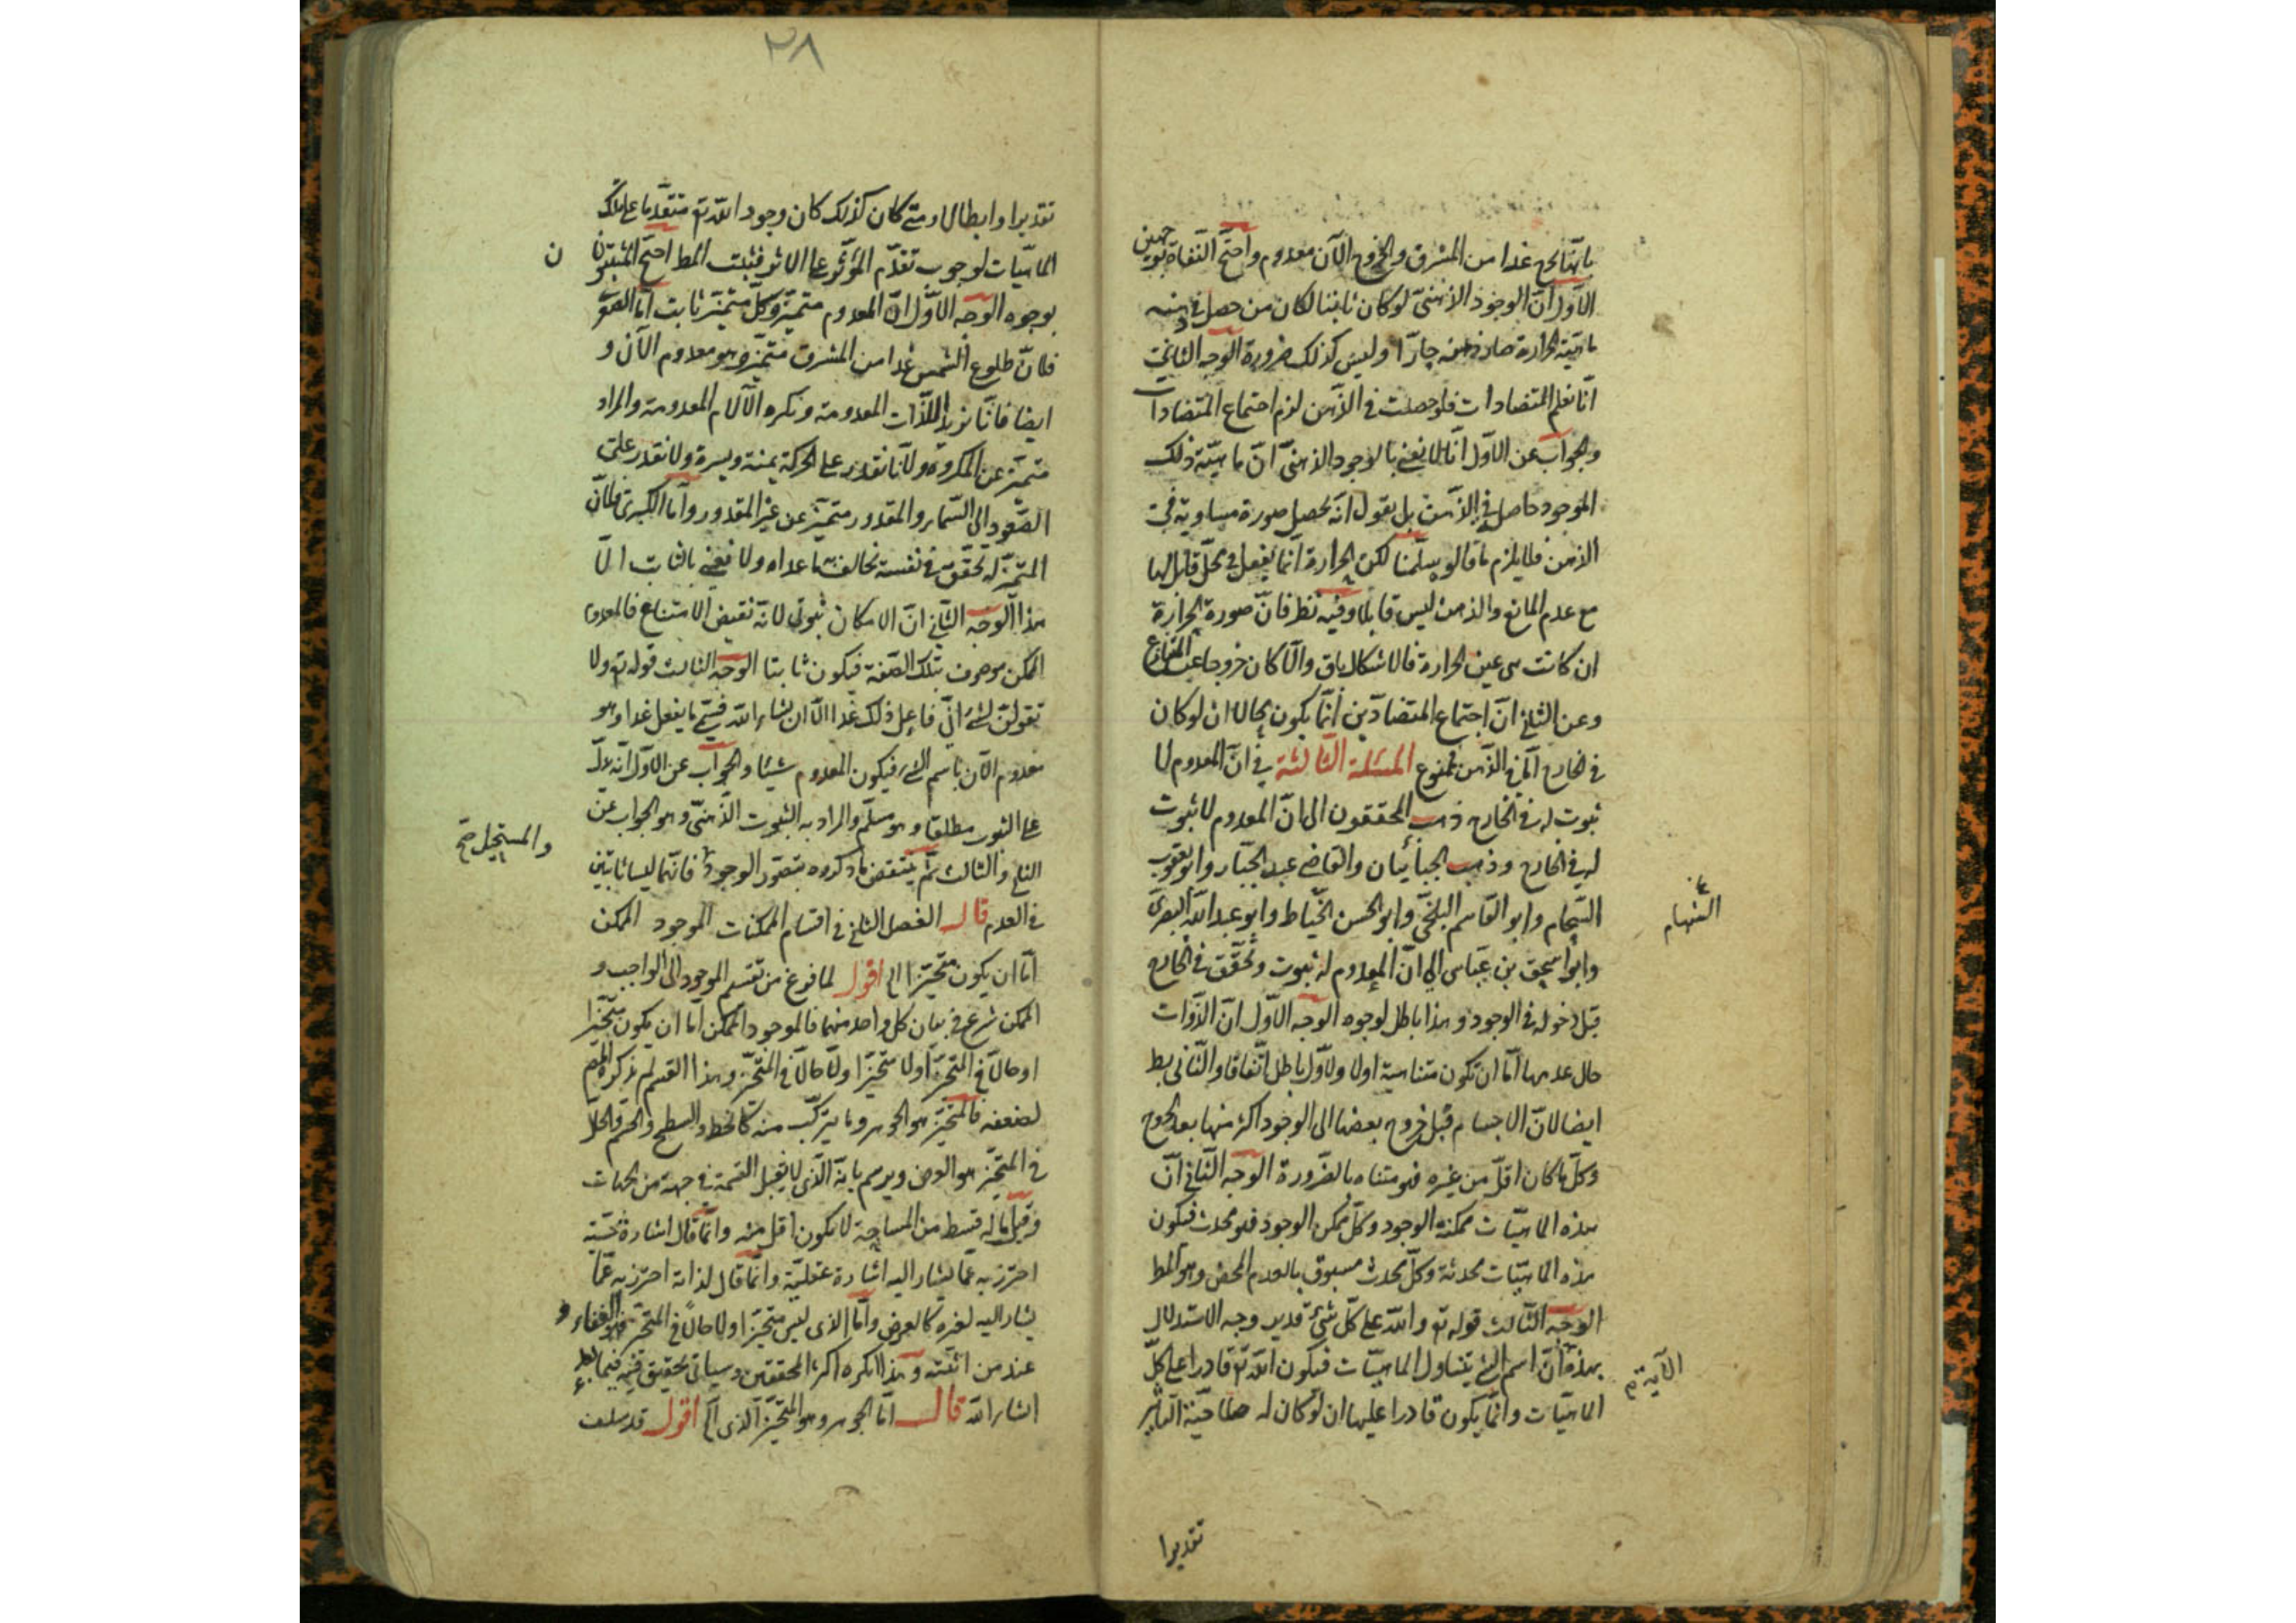 بانها تخرج غدا من المشرق والخروج الآن معدوم واحتج النفاة بوجهين
الأول ان الوجود الذهنى لو كان ثابتا لكان من حصل فى ذهنه
ماهية الحرارة صار ذهنه حارا وليس كذلك ضرورة الوجه الثانى
انا نعلم المتضادات فلو حصلت فى الذهن لزم اجتماع المتضادات
والجواب عن الاول انا لا نعنى بالوجود الذهنى ان ماهية ذلك
الموجود حاصل فى الذهن بل نقول انه تحصل صورة مساوية فى
الذهن فلا يلزم ما قالوه سلمنا لكن الحرارة انما يفعل فى محل قابل لها
مع عدم المانع والذهن ليس قابلا وفيه نظر فان صورة الحرارة
ان كانت هى عين الحرارة فالاشكال باق والا كان خروجا عن المتنازع
وعن الثانى ان اجتماع المتضادين انما يكون محالا ان لو كان
فى الخارج اما فى الذهن فممنوع المسئلة الثالثة فى ان المعدوم لا
ثبوت له فى الخارج ذهب المحققون الى ان المعدوم لا ثبوت
له فى الخارج وذهب الجبائيان والقاضى عبد الجبار وابو يعقوب
الشحام وابو القاسم البلخى وابو الحسن الخياط وابو عبد الله البصرى
وابو اسحق بن عياش الى ان المعدوم له ثبوت وتحقق فى الخارج
قبل دخوله فى الوجود وهذا باطل لوجوه الوجه الاول ان الذوات
حال عدمها اما ان تكون متناهية اولا والاول باطل اتفاقا والثانى بط
ايضا لان الاجسام قبل خروج بعضها الى الوجود اكثر منها بعد الخروج
وكل ما كان اقل من غيره فهو متناه بالضرورة الوجه الثانى ان
هذه الماهيات ممكنة الوجود وكل ممكن الوجود فهو محدث فيكون
هذه الماهيات محدثة وكل محدث مسبوق بالعدم المحض وهو المط
الوجه الثالث قوله تع والله على كل شئ قدير وجه الاستدلال
بهذه ان اسم الشئ يتناول الماهيات فيكون الله تع قادرا على كل
الآية م
الماهيات وانما يكون قادرا عليها ان لو كان له صلاحية التأثير
تقديرا
٢٨
تقديرا وابطالا ومتى كان كذلك كان وجود الله تع متقدما على تلك
الماهيات لوجوب تقدم المؤثر على الاثر فثبت المط احتج المثبتون
بوجوه الوجه الاول ان المعدوم متميز وكل متميز ثابت اما الصغرى
فلان طلوع الشمس غدا من المشرق متميز وهو معدوم الآن و
ايضا فانا نريد اللذات المعدومة ونكره الآلام المعدومة والمراد
متميز عن المكروه ولانا نقدر على الحركة يمنة ويسرة ولا نقدر على
الصعود الى السماء والمقدور متميز عن غير المقدور واما الكبرى فلان
المتميز له تحقق فى نفسه يخالف به ما عداه ولا نعنى بالثابت الا
هذا الوجه الثانى ان الامكان ثبوتى لانه نقيض الامتناع فالمعدوم
الممكن موصوف بتلك الصفة فيكون ثابتا الوجه الثالث قوله تع ولا
تقولن لشئ انى فاعل ذلك غدا الا ان يشاء الله فسمى ما يفعل غدا وهو
معدوم الآن باسم الشئ فيكون المعدوم شيئا والجواب عن الاول انه يدل
على الثبوت مطلقا وهو مسلم والمراد به الثبوت الذهنى وهو الجواب عن
الثانى والثالث ثم ينتقض ما ذكروه بتصور الوجود فانهما ليسا ثابتين
والمستحيل صح
فى العدم قال الفصل الثانى فى اقسام الممكنات الموجود الممكن
اما ان يكون متحيزا الى اقول لما فرغ من تقسيم الموجود الى الواجب و
الممكن شرع فى بيان كل واحد منهما فالموجود الممكن اما ان يكون متحيزا
او حالا فى المتحيز او لا متحيزا ولا حالا فى المتحيز وهذا القسم لم يذكره المص
لضعفه فالمتحيز هو الجوهر وما يتركب منه كالخط والسطح والجسم والحال
فى المتحيز هو العرض ويرسم بانه الذى لا يقبل القسمة فى جهة من الجهات
وقيل ما له قسط من المساحة لا يكون اقل منه وانما قال اشارة حسية
احترز به عما يشار اليه اشارة عقلية وانما قال لذاته احترز به عما
يشار اليه لغيره كالعرض واما الذى ليس متحيزا ولا حالا فى المتحيز فهو الفناء
عند من اثبته وهذا انكره اكثر المحققين وسيأتى تحقيق فيه فيما بعد
انشاء الله قال اما الجوهر وهو المتحيز الذى الخ اقول قد سلف